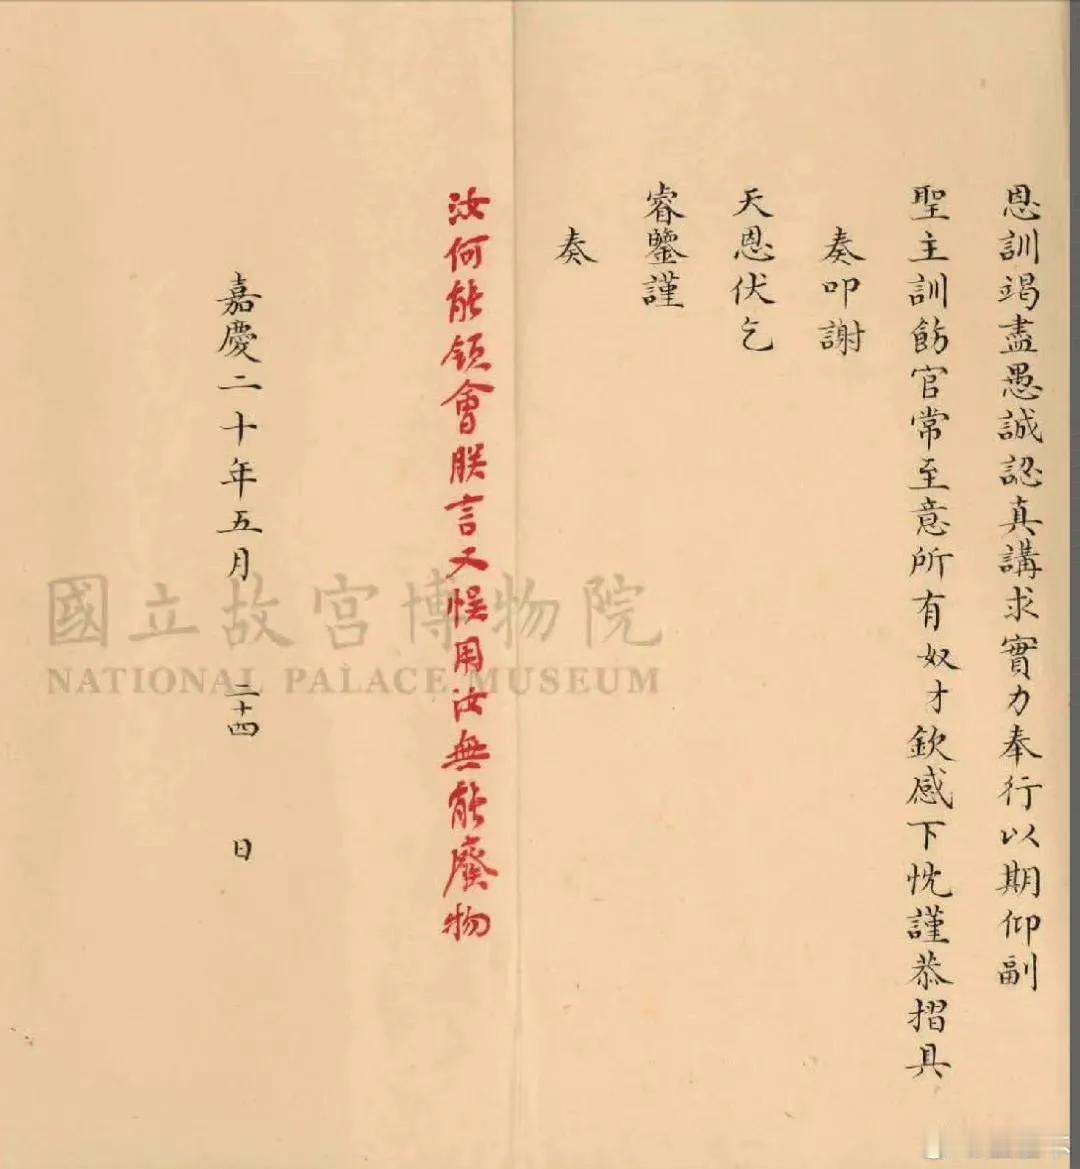 恩訓竭盡愚誠認真講求實力奉行以期仰副
聖主訓飭官常至意所有奴才欽感下忱謹恭摺具
奏叩謝
天恩伏乞
睿鑒謹
奏
汝何能領會朕言又悞用汝無能廢物
嘉慶二十年五月 二十四 日
國立故宮博物院
NATIONAL PALACE MUSEUM